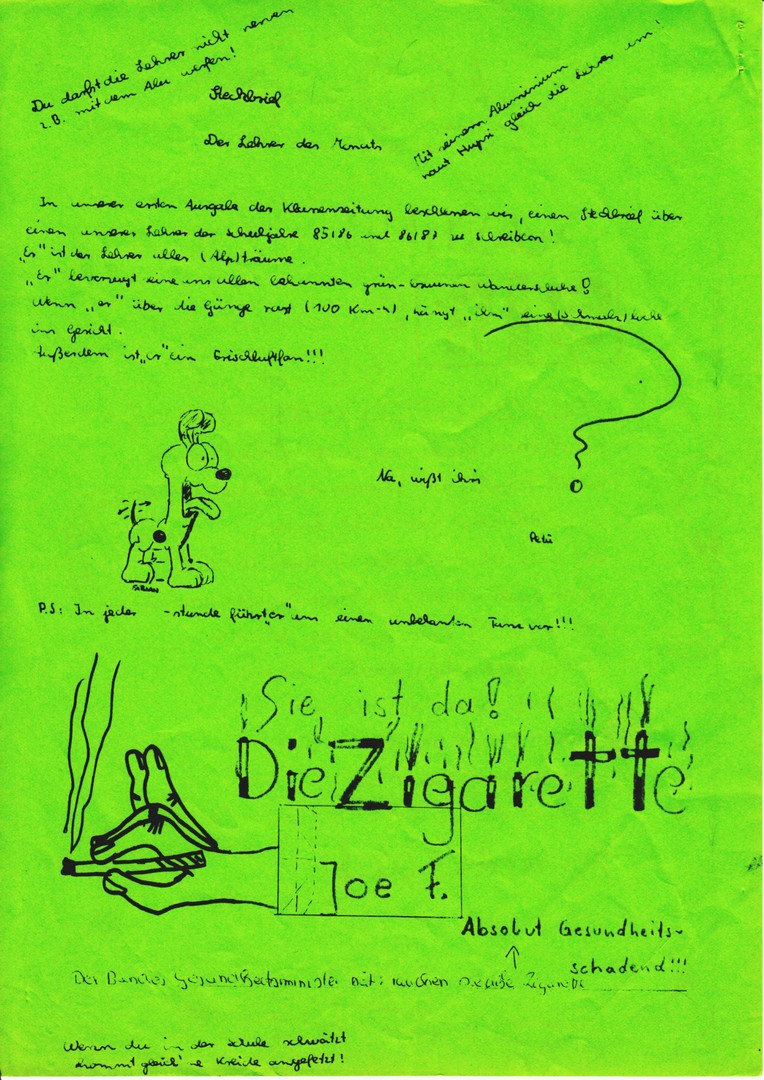 Du darfst die Lehrer nicht nerven
z.B. mit dem Alu werfen!
Mit einem Aluminium
haut Hupsi gleich die Lehrer um!
Steckbrief
Der Lehrer des Monats
In unserer ersten Ausgabe der Klassenzeitung beschlossen wir, einen Steckbrief über
einen unserer Lehrer der Schuljahre 85/86 und 86/87 zu schreiben!
„Er" ist der Lehrer aller (Alp)träume.
„Er" bevorzugt eine uns allen bekannten grün-braunen Wanderschuhe!
Wenn „er" über die Gänge rast (100 Km-h), hängt „ihm" eine (Schmalz)locke
ins Gesicht.
Außerdem ist „er" ein Frischluftfan!!!
Na, wißt ihr's
?
P.S: In jeder -stunde führt „er" uns einen unbekanten Tanz vor!!!
Sie ist da!
Die Zigarette
Joe F.
Absolut Gesundheits-
schadend!!!
Der Bundes Gesundheitsminister rät: rauchen sie diese Zigarette
Wenn du in der Schule schwätzt
kommt gleich 'e Kreide angefetzt!